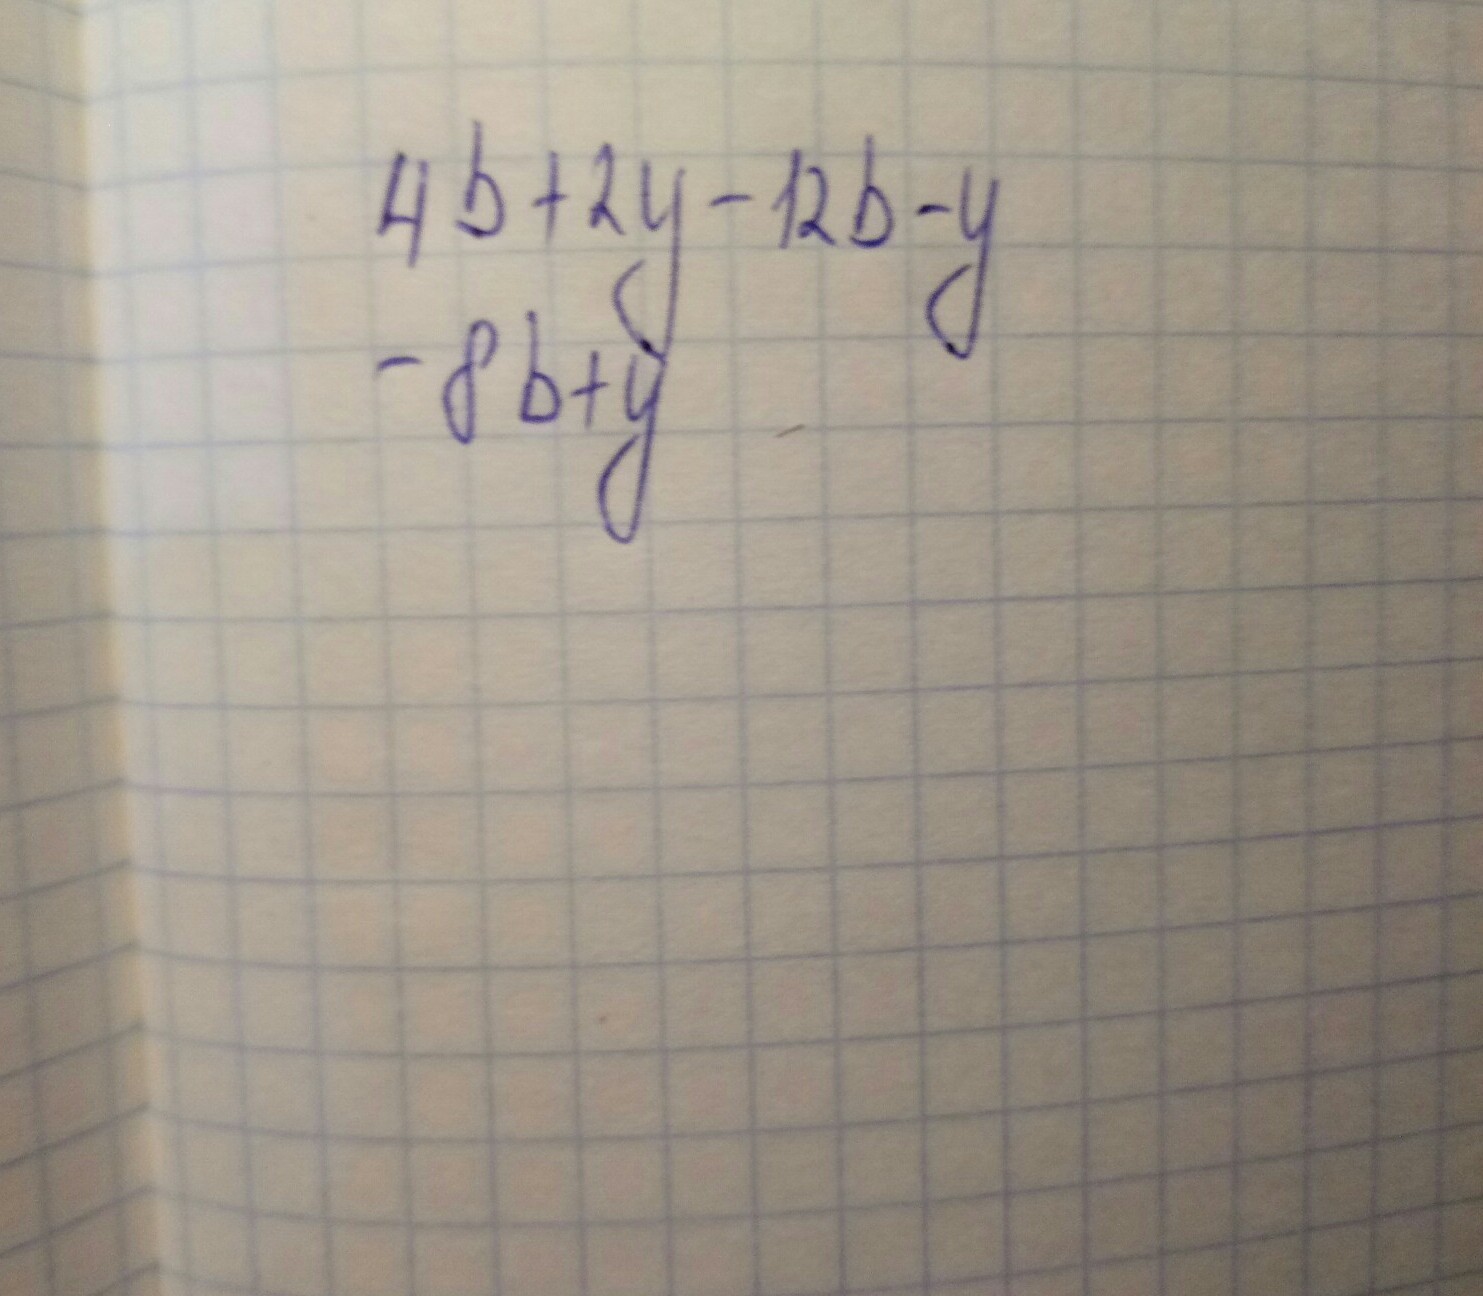 4b+2y-12b-y
-8b+y